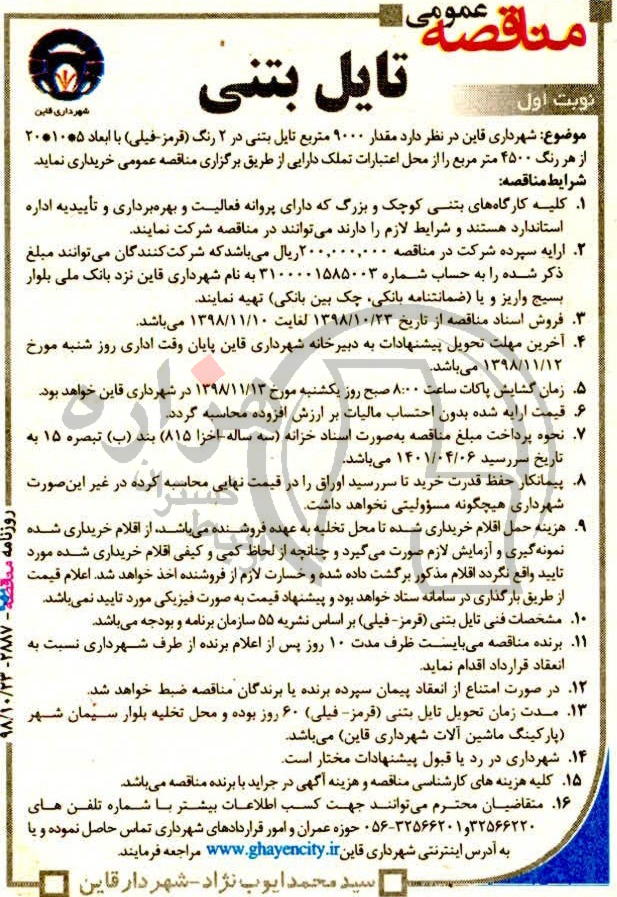 مناقصه عمومی
تایل بتنی
شهرداری قاین
نوبت اول
موضوع: شهرداری قاین در نظر دارد مقدار ۹۰۰۰ متربع تایل بتنی در ۲ رنگ (قرمز-فیلی) با ابعاد ۵*۱۰*۲۰
از هر رنگ ۴۵۰۰ متر مربع را از محل اعتبارات تملک دارایی از طریق برگزاری مناقصه عمومی خریداری نماید.
شرایط مناقصه:
۱. کلیه کارگاه‌های بتنی کوچک و بزرگ که دارای پروانه فعالیت و بهره‌برداری و تأییدیه اداره
استاندارد هستند و شرایط لازم را دارند می‌توانند در مناقصه شرکت نمایند.
۲. ارایه سپرده شرکت در مناقصه ۲۰۰,۰۰۰,۰۰۰ریال می‌باشدکه شرکت‌کنندگان می‌توانند مبلغ
ذکر شده را به حساب شماره ۳۱۰۰۰۰۱۵۸۵۰۰۳ به نام شهرداری قاین نزد بانک ملی بلوار
بسیج واریز و یا (ضمانتنامه بانکی، چک بین بانکی) تهیه نمایند.
۳. فروش اسناد مناقصه از تاریخ ۱۳۹۸/۱۰/۲۳ لغایت ۱۳۹۸/۱۱/۱۰ می‌باشد.
۴. آخرین مهلت تحویل پیشنهادات به دبیرخانه شهرداری قاین پایان وقت اداری روز شنبه مورخ
۱۳۹۸/۱۱/۱۲ می‌باشد.
۵. زمان گشایش پاکات ساعت ۸:۰۰ صبح روز یکشنبه مورخ ۱۳۹۸/۱۱/۱۳ در شهرداری قاین خواهد بود.
۶. قیمت ارایه شده بدون احتساب مالیات بر ارزش افزوده محاسبه گردد.
۷. نحوه پرداخت مبلغ مناقصه به‌صورت اسناد خزانه (سه ساله-اخزا ۸۱۵) بند (ب) تبصره ۱۵ به
تاریخ سررسید ۱۴۰۱/۰۴/۰۶ می‌باشد.
۸. پیمانکار حفظ قدرت خرید تا سررسید اوراق را در قیمت نهایی محاسبه کرده در غیر این‌صورت
شهرداری هیچگونه مسؤولیتی نخواهد داشت.
۹. هزینه حمل اقلام خریداری شده تا محل تخلیه به عهده فروشنده می‌باشد، از اقلام خریداری شده
نمونه‌گیری و آزمایش لازم صورت می‌گیرد و چنانچه از لحاظ کمی و کیفی اقلام خریداری شده مورد
تایید واقع نگردد اقلام مذکور برگشت داده شده و خسارت لازم از فروشنده اخذ خواهد شد. اعلام قیمت
از طریق بارگذاری در سامانه ستاد خواهد بود و پیشنهاد قیمت به صورت فیزیکی مورد تایید نمی‌باشد.
۱۰. مشخصات فنی تایل بتنی (قرمز- فیلی) بر اساس نشریه ۵۵ سازمان برنامه و بودجه می‌باشد.
۱۱. برنده مناقصه می‌بایست ظرف مدت ۱۰ روز پس از اعلام برنده از طرف شهرداری نسبت به
انعقاد قرارداد اقدام نماید.
۱۲. در صورت امتناع از انعقاد پیمان سپرده برنده یا برندگان مناقصه ضبط خواهد شد.
۱۳. مدت زمان تحویل تایل بتنی (قرمز- فیلی) ۶۰ روز بوده و محل تخلیه بلوار سیمان شهر
(پارکینگ ماشین آلات شهرداری قاین) می‌باشد.
۱۴. شهرداری در رد یا قبول پیشنهادات مختار است.
۱۵. کلیه هزینه های کارشناسی مناقصه و هزینه آگهی در جراید با برنده مناقصه می‌باشد.
۱۶. متقاضیان محترم می‌توانند جهت کسب اطلاعات بیشتر با شماره تلفن های
۳۲۵۶۶۲۲۰و۳۲۵۶۶۲۰۱-۰۵۶ حوزه عمران و امور قراردادهای شهرداری تماس حاصل نموده و یا
به آدرس اینترنتی شهرداری قاین www.ghayencity.ir مراجعه فرمایند.
سید محمد ایوب نژاد-شهردار قاین
روزنامه مناقصه ۲۸۸۷- ۹۸/۱۰/۲۳
هزاره